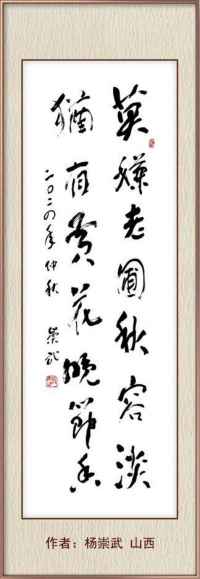 莫嫌老圃秋容淡
猶有黄花晚節香
二〇二四年仲秋 崇武
作者：杨崇武 山西